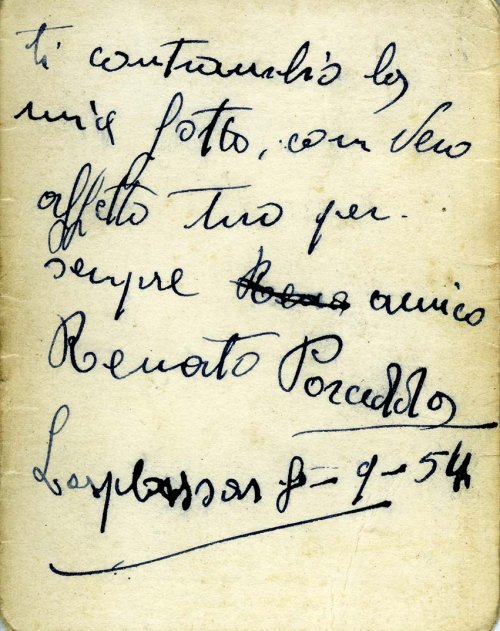 ti contracambio la
mia fotto, con vero
affetto tuo per
sempre Rena amico
Renato Porcedda
Lasplassas 8-9-54